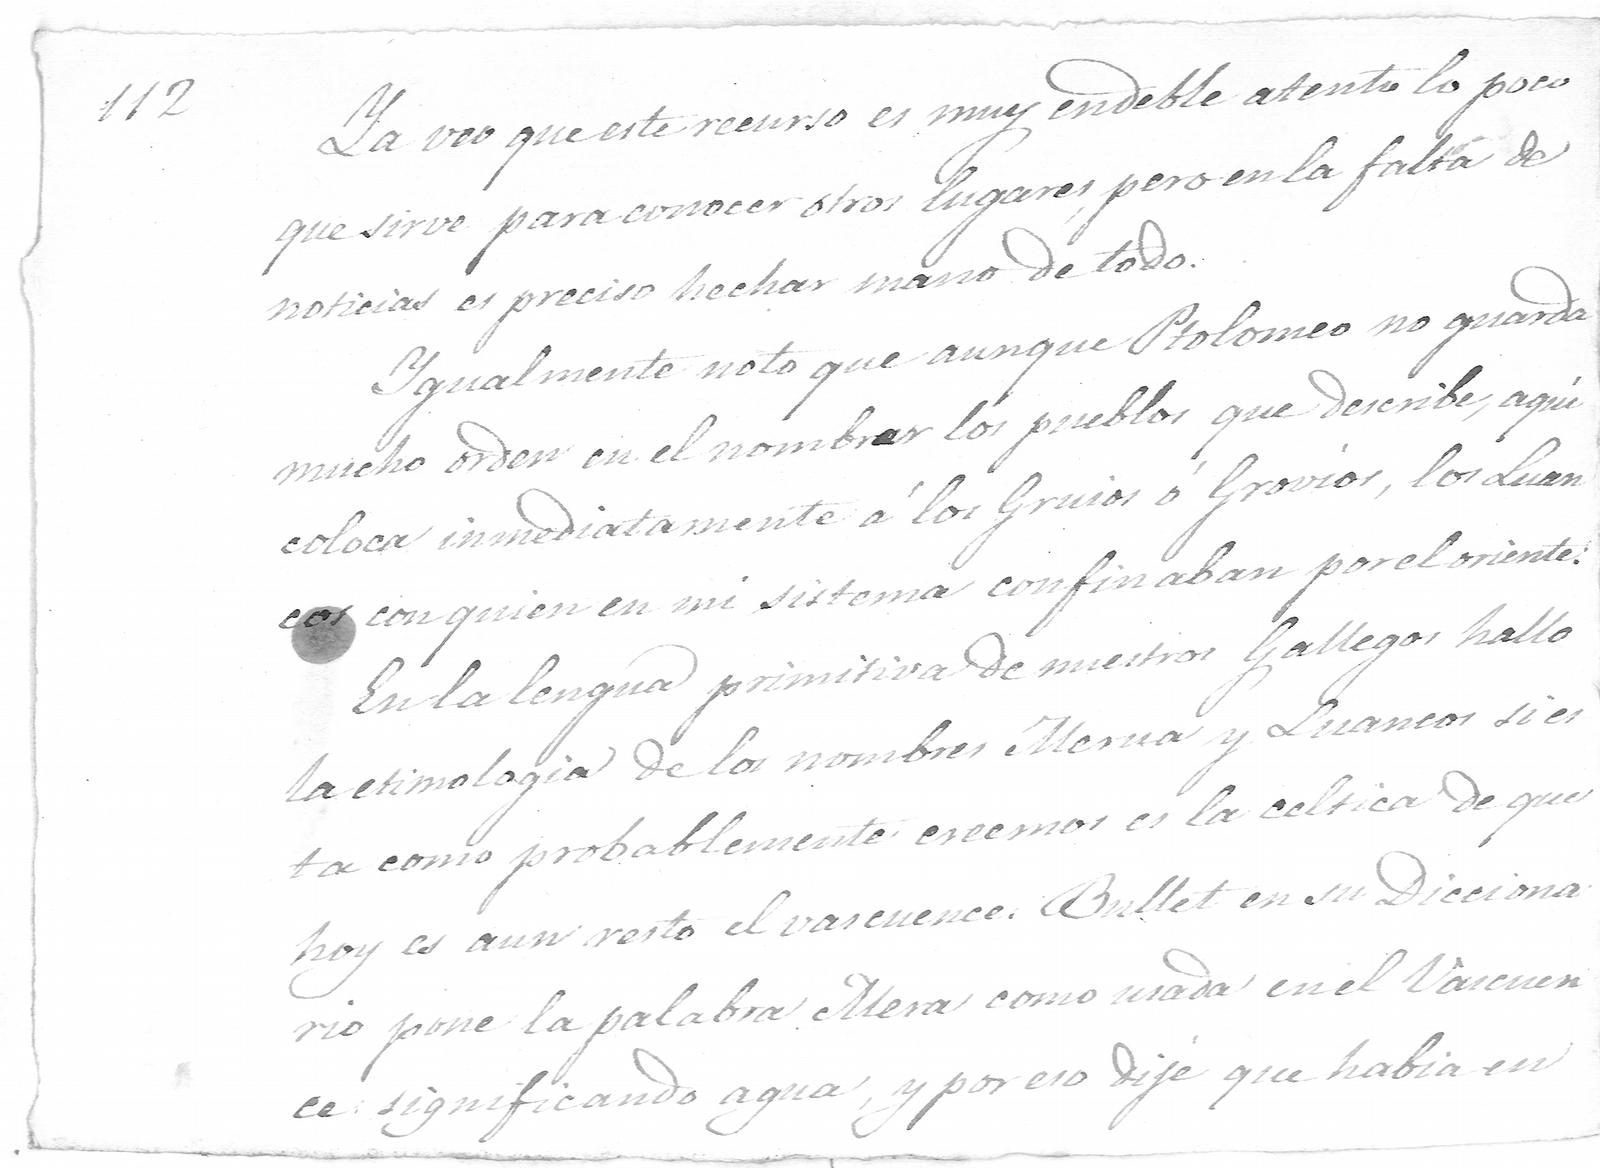 112
Ya veo que este recurso es muy endeble atento lo poco
que sirve para conocer otros lugares, pero en la falta de
noticias es preciso hechar mano de todo.
Ygualmente noto que aunque Ptolomeo no guarda
mucho orden en el nombrar los pueblos que describe, aqui
coloca inmediatamente á los Gruios ó Grovios, los Luan
cos con quien en mi sistema confinaban por el oriente.
En la lengua primitiva de nuestros Gallegos hallo
la etimologia de los nombres Merua y Luancos si es
ta como probablemente creemos es la celtica de que
hoy es aun resto el vascuence. Bullet en su Dicciona
rio pone la palabra Mera como usada en el Vascuen
ce significando agua, y por eso dije que habia en